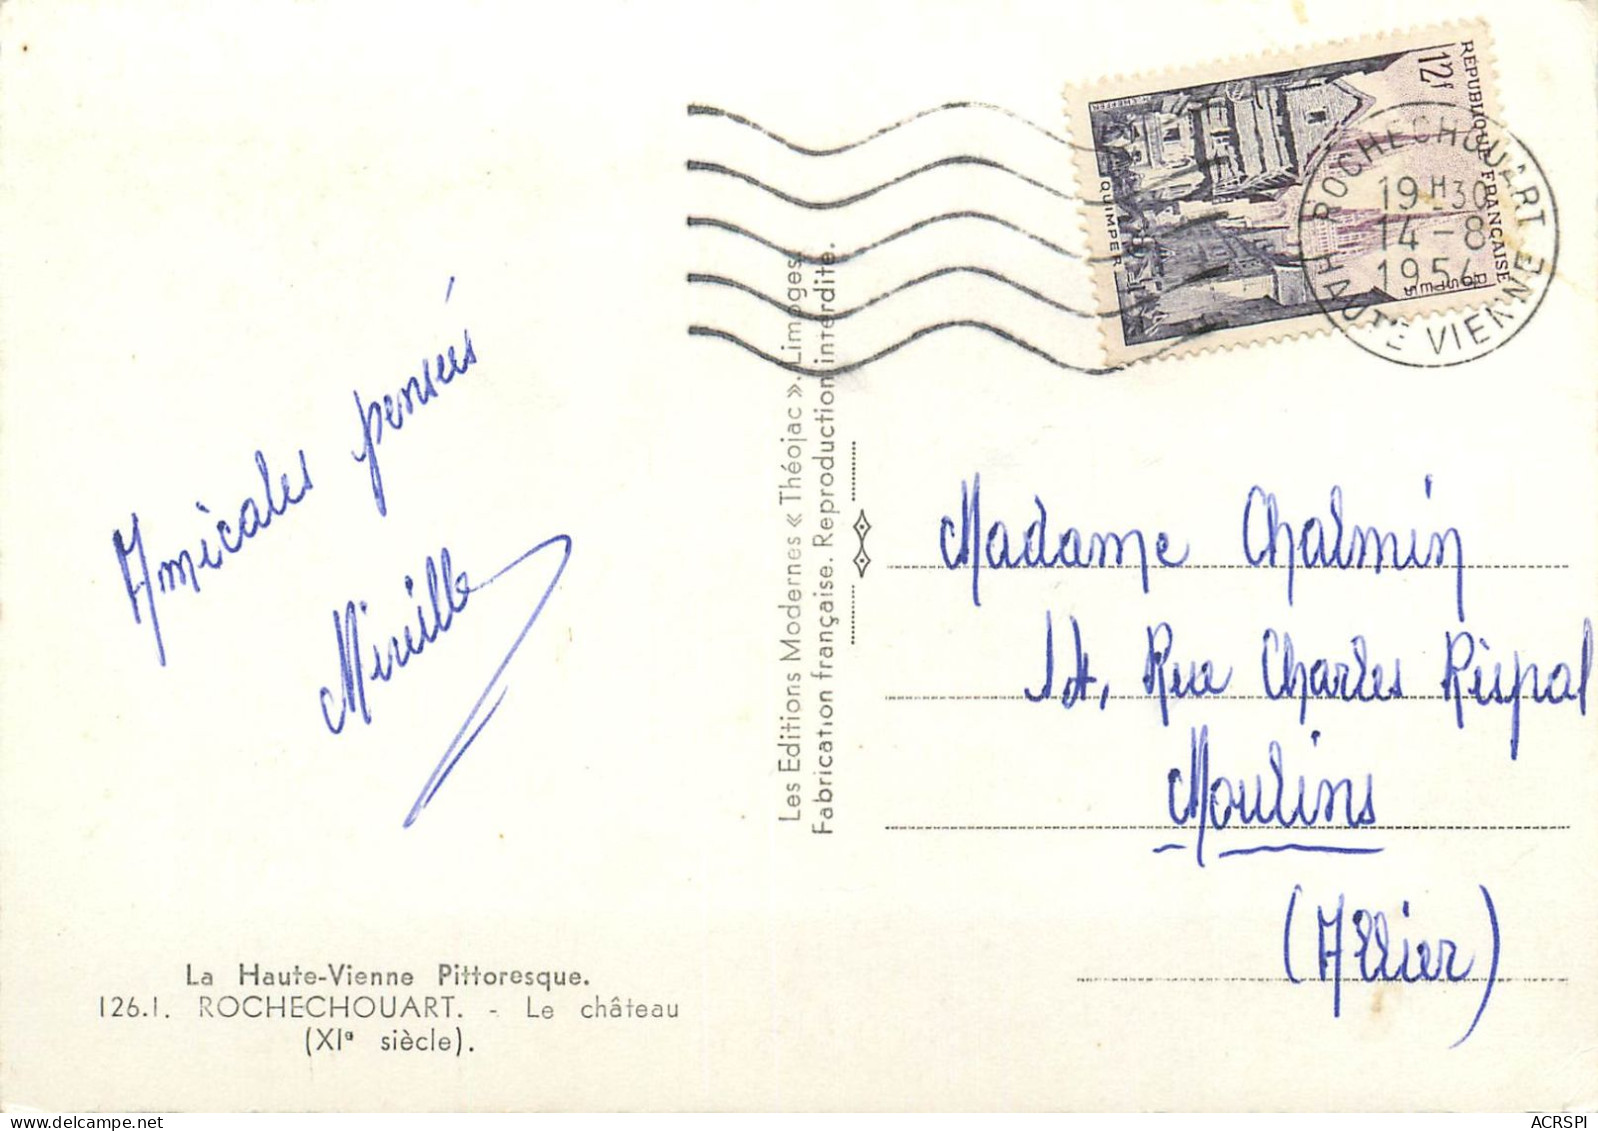 Amicales pensées
Mireille
La Haute-Vienne Pittoresque.
126.1. ROCHECHOUART. - Le château
(XIe siècle).
Les Editions Modernes « Théojac ». Limoges.
Fabrication française. Reproduction interdite.
REPUBLIQUE FRANÇAISE
12f
POSTES
QUIMPER
ROCHECHOUART
19H30
14-8
1954
HAUTE VIENNE
Madame Chalmin
14, Rue Charles Rispal
Moulins
(Allier)
ACRSPI